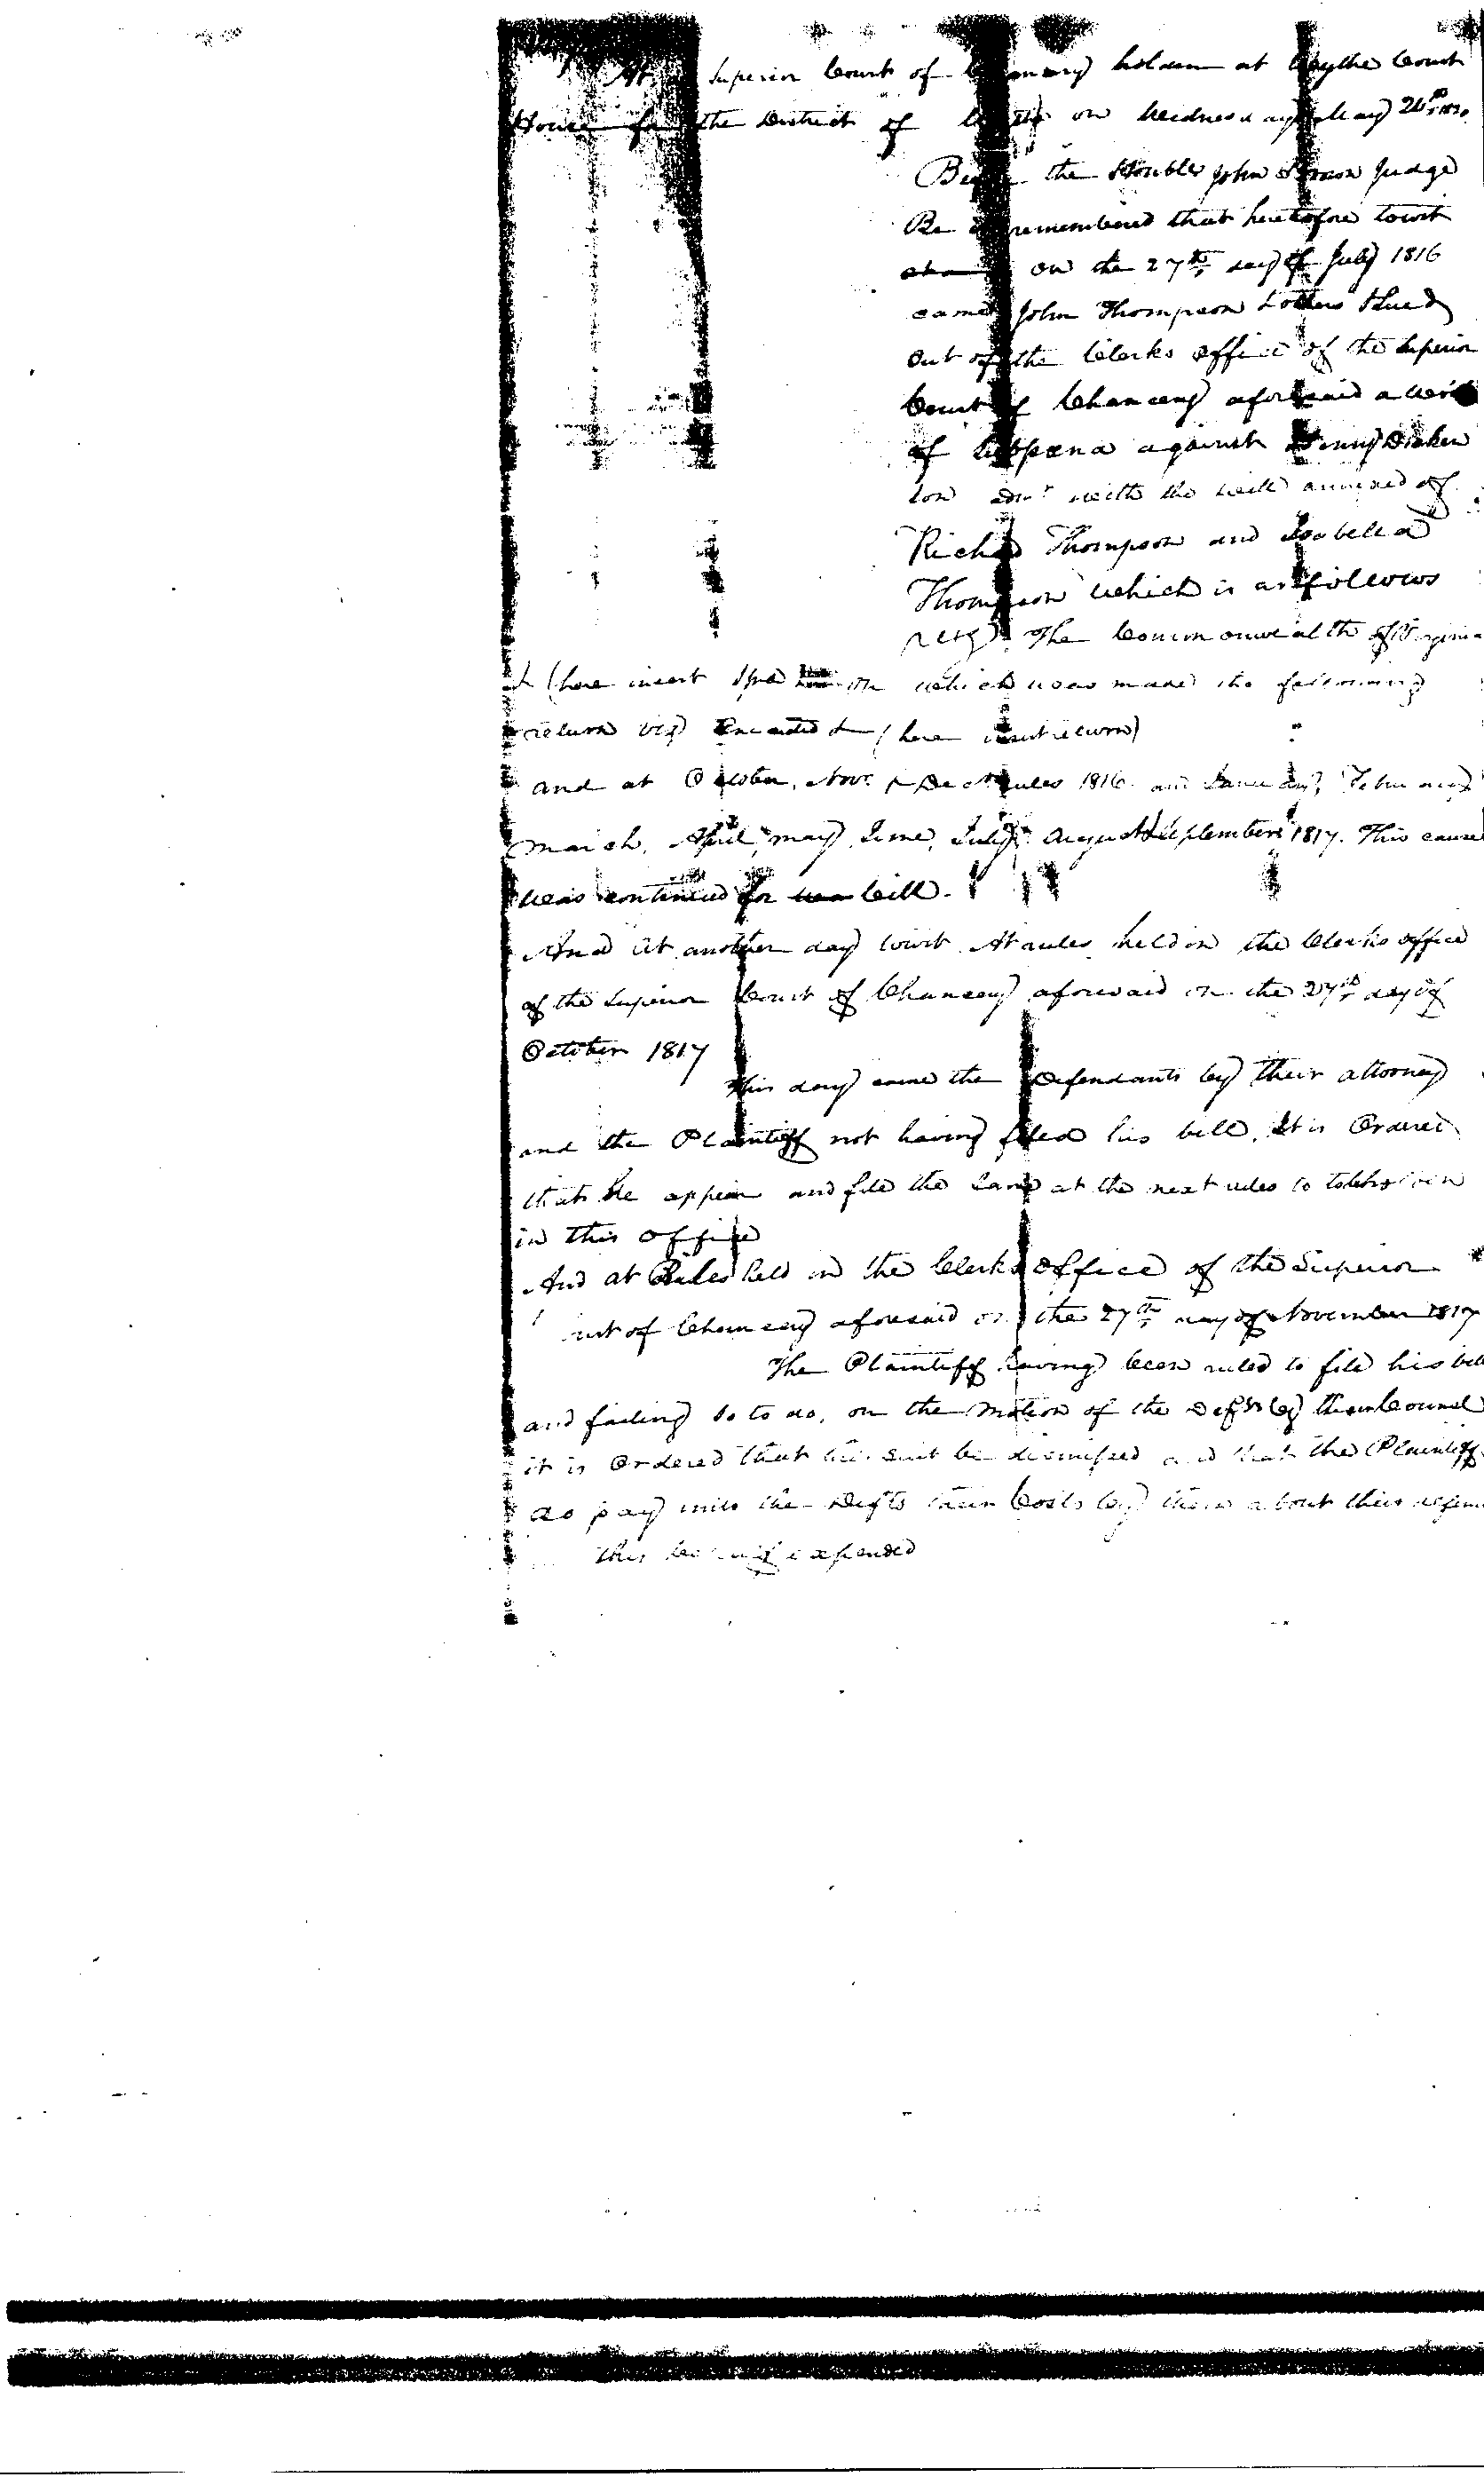 At Superior Court of Chancery holden at Wythe Court
House for the District of on Wednesday May 20th
Before the Honble John Brown Judge
Be it remembered that heretofore towit
on the 27th day of July 1816
came John Thompson & Sued
out of the Clerks office of the Superior
Court of Chancery aforesaid a writ
of Subpoena against Henny Dicken
son admr with the will annexed of
Richd Thompson and Isabella
Thompson which is as follows
The Commonwealth of Virginia
& (here insert Spa on which was made the following
return viz Executed & (here insert return)
and at October, Novr & Decr Rules 1816 and January, February
March, April, may, June, July, August September 1817. This cause
was continued for bill.
And at another day towit At rules held in the Clerks office
of the Superior Court of Chancery aforesaid on the 27th day of
October 1817
This day came the Defendants by their attorney
and the Plaintiff not having filed his bill, It is Ordered
that he appear and file the same at the next rules to be
in this office
And at Rules held in the Clerks office of the Superior
urt of Chancery aforesaid on the 27th day of November 1817
The Plaintiff having been ruled to file his bill
and failing so to do, on the motion of the Defts by their Counsel
it is Ordered that his suit be dismissed and that the Plaintiff
do pay unto the Defts their Costs by them about their defence
this expended